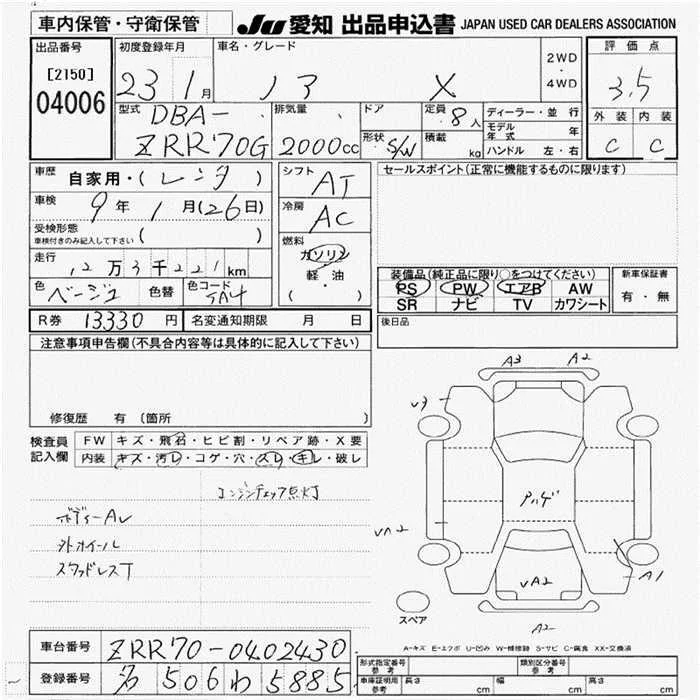 車内保管・守衛保管
JU 愛知 出品申込書 JAPAN USED CAR DEALERS ASSOCIATION
出品番号
[2150]
04006
初度登録年月
23 1月
車名・グレード
ノア X
2WD
・
4WD
評価点
3.5
外装 内装
C C
型式
DBA-
ZRR70G
排気量
2000cc
ドア
形状 S/W
定員 8人
積載 kg
ディーラー・並行
モデル年式 年
ハンドル 左・右
車歴
自家用・(レンタ)
車検
9年 1月(26日)
受検形態
車検付きのみ記入して下さい ( )
走行
12万3千221km
色 ベージュ 色替 色コード 5A4
シフト AT
冷房 AC
燃料
ガソリン
軽・油
( ・ )
セールスポイント(正常に機能するものに限ります)
装備品(純正品に限り○をつけてください)
PS PW エアB AW
SR ナビ TV カワシート
新車保証書
有・無
R券 13330円 名変通知期限 月 日
後日品
注意事項申告欄(不具合内容等は具体的に記入して下さい)
修復歴 有(箇所 )
検査員
記入欄
FW キズ・飛石・ヒビ割・リペア跡・X要
内装 キズ・汚レ・コゲ・穴・スレ・キレ・破レ
エンジンチェック点灯
ボディーAV
外ホイール
スタッドレスT
A3 A2
U3
アハゲ
VA2
A1
VA2
A2
スペア
A-キズ E-エクボ U-凹み W-補修跡 S-サビ C-腐食 XX-交換済
車台番号 ZRR70-0402430
登録番号 名 506 わ 5885
形式指定番号
参考
類別区分番号
参考
車庫証明用
参考
長さ cm 幅 cm 高さ cm